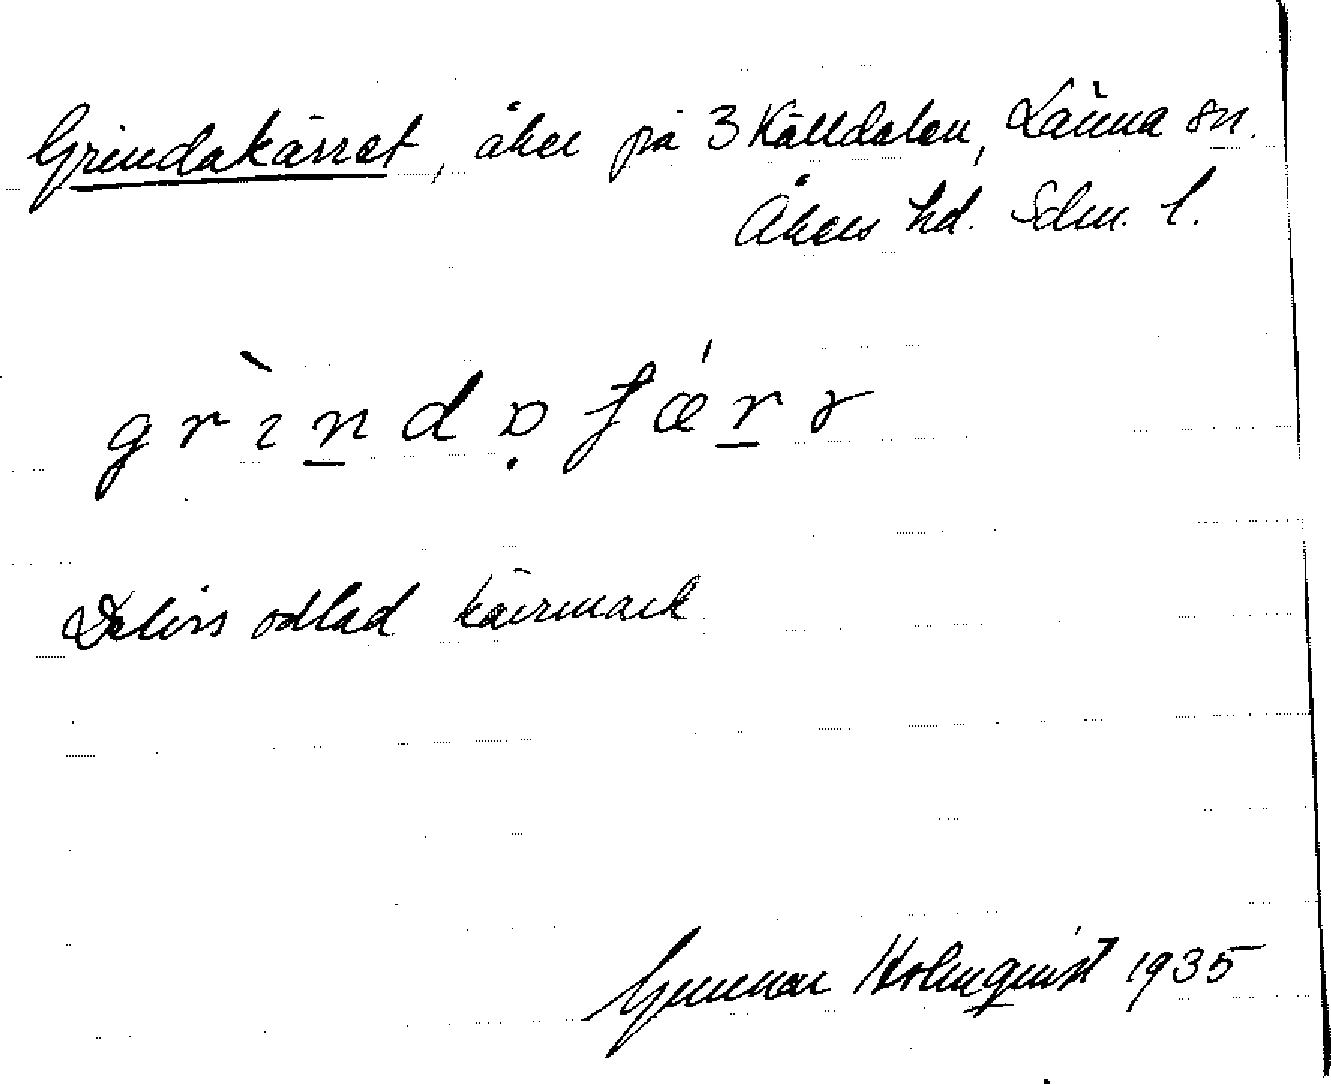 Grindakärret, åker på 3 Källdalen, Länna sn.
Åkers hd. Sdm. l.
Delvis odlad kärrmark
Gunnar Holmquist 1935